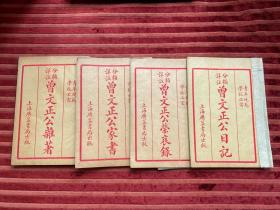 分類
詳註
曾文正公雜著
上海廣益書局出版
分類
詳註
曾文正公家書
上海廣益書局出版
分類
詳註
曾文正公榮哀錄
上海廣益書局出版
分類
詳註
曾文正公日記
上海廣益書局出版